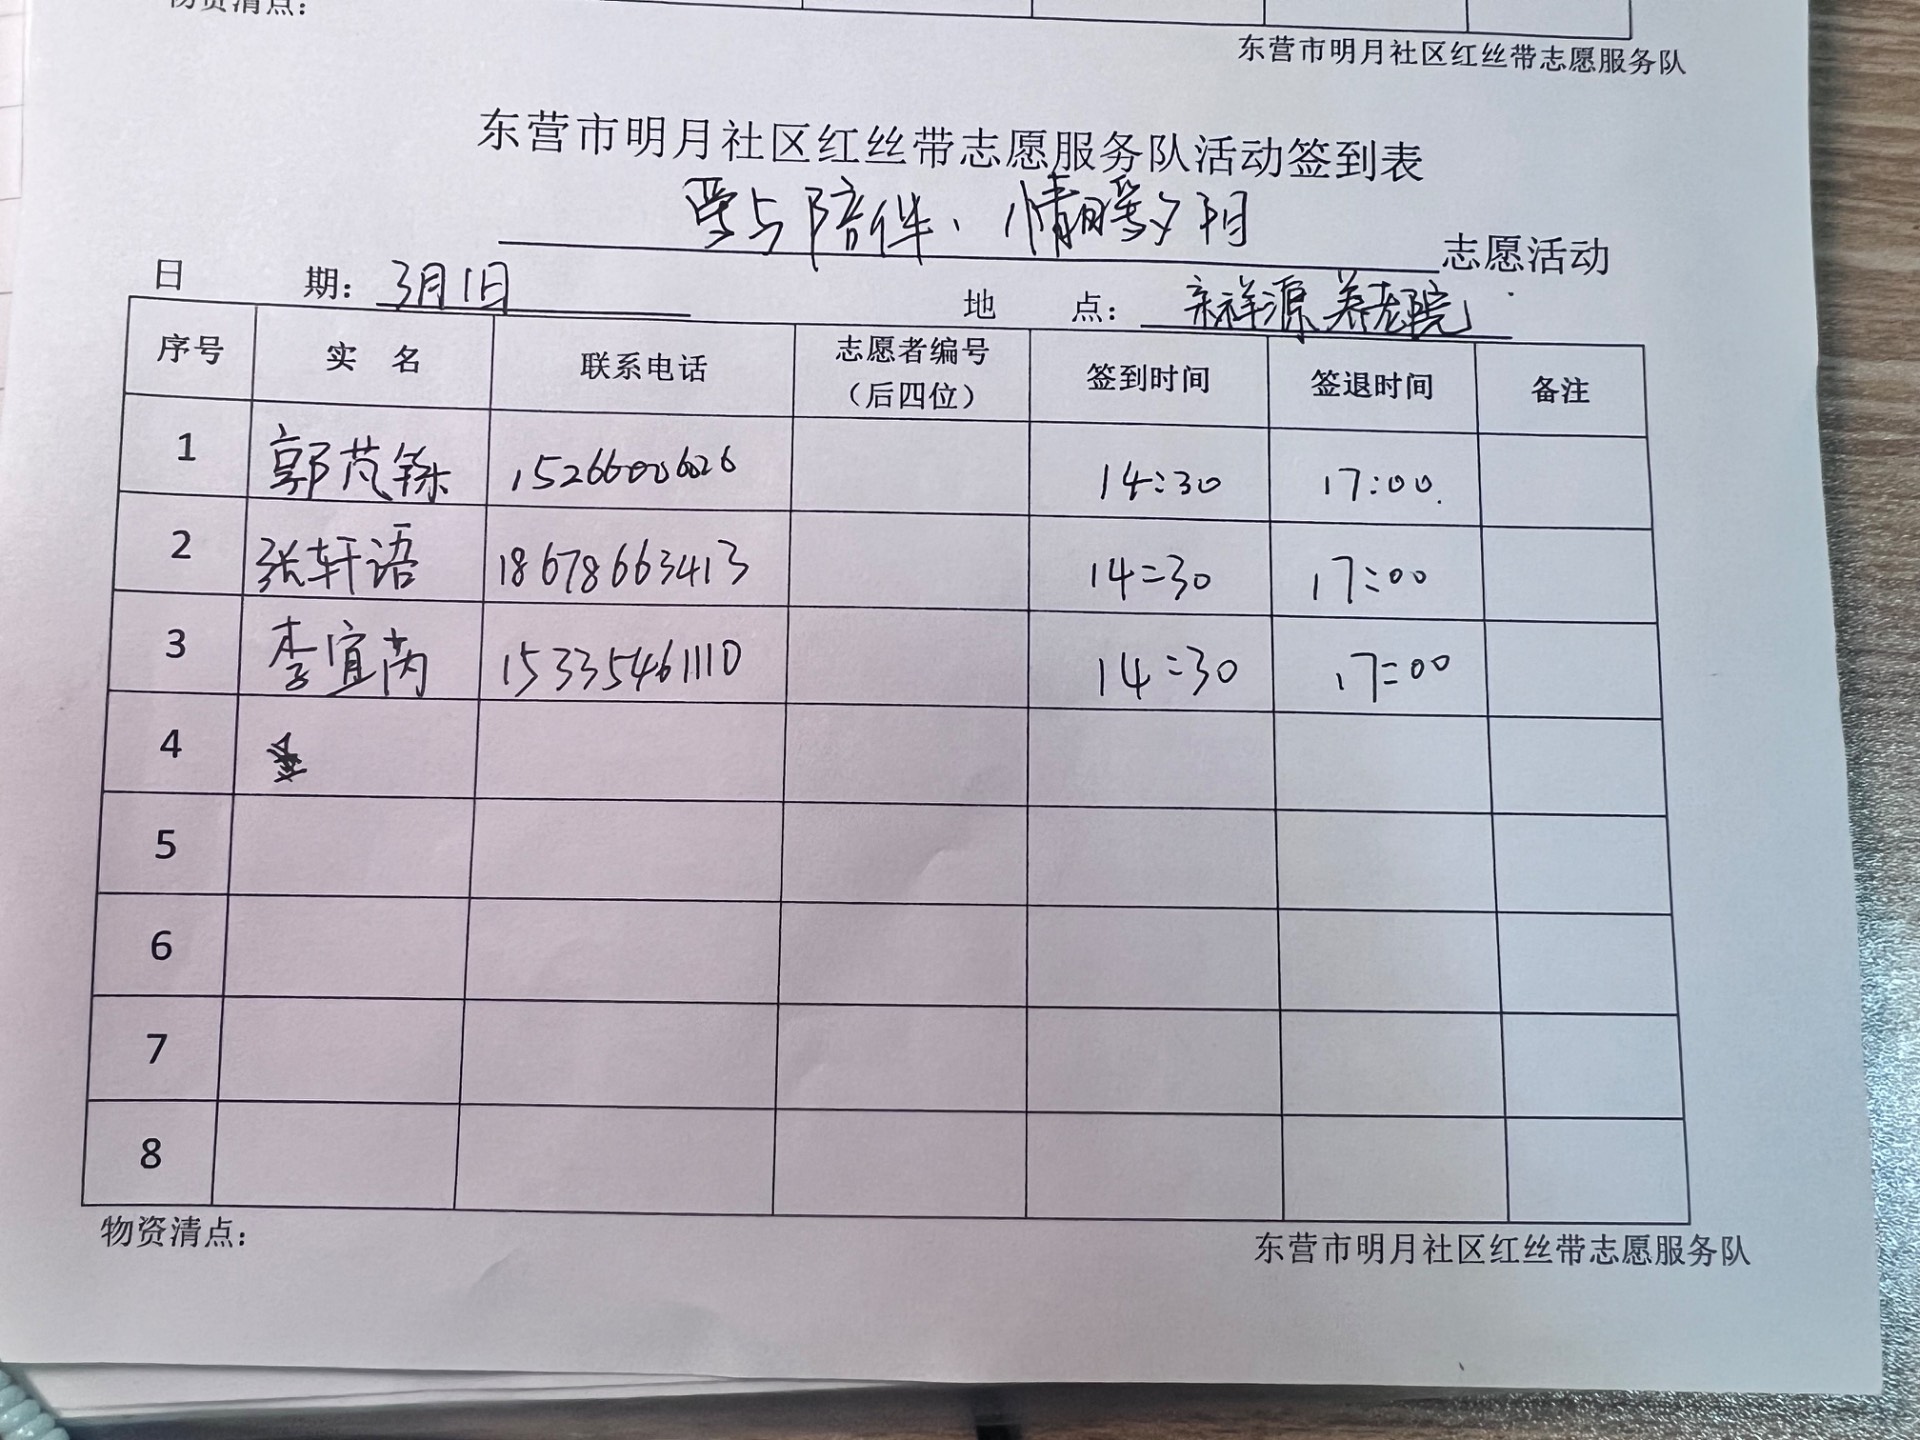 物资清点：
东营市明月社区红丝带志愿服务队
东营市明月社区红丝带志愿服务队活动签到表
爱与陪伴、情暖夕阳 志愿活动
日 期：3月1日 地 点：祥源养老院
序号 实 名 联系电话 志愿者编号（后四位） 签到时间 签退时间 备注
1 郭芃铄 15266006026 14:30 17:00.
2 张轩语 18678663413 14:30 17:00
3 李宜芮 15335461110 14:30 17:00
4
5
6
7
8
物资清点：
东营市明月社区红丝带志愿服务队